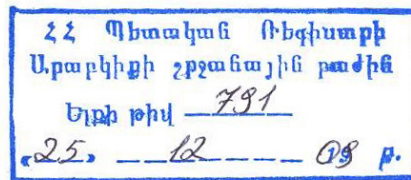 ՀՀ Պետական Ռեգիստրի
Արաբկիրի շրջանային բաժին
Ելքի թիվ 791
«25» 12 09 թ.